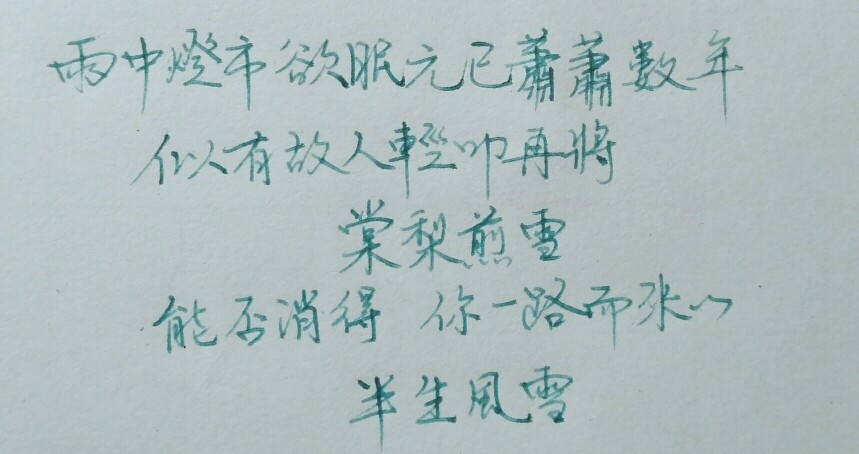 雨中燈市欲眠元已蕭蕭數年
似有故人輕叩再將
棠梨煎雪
能否消得 你一路而來的
半生風雪